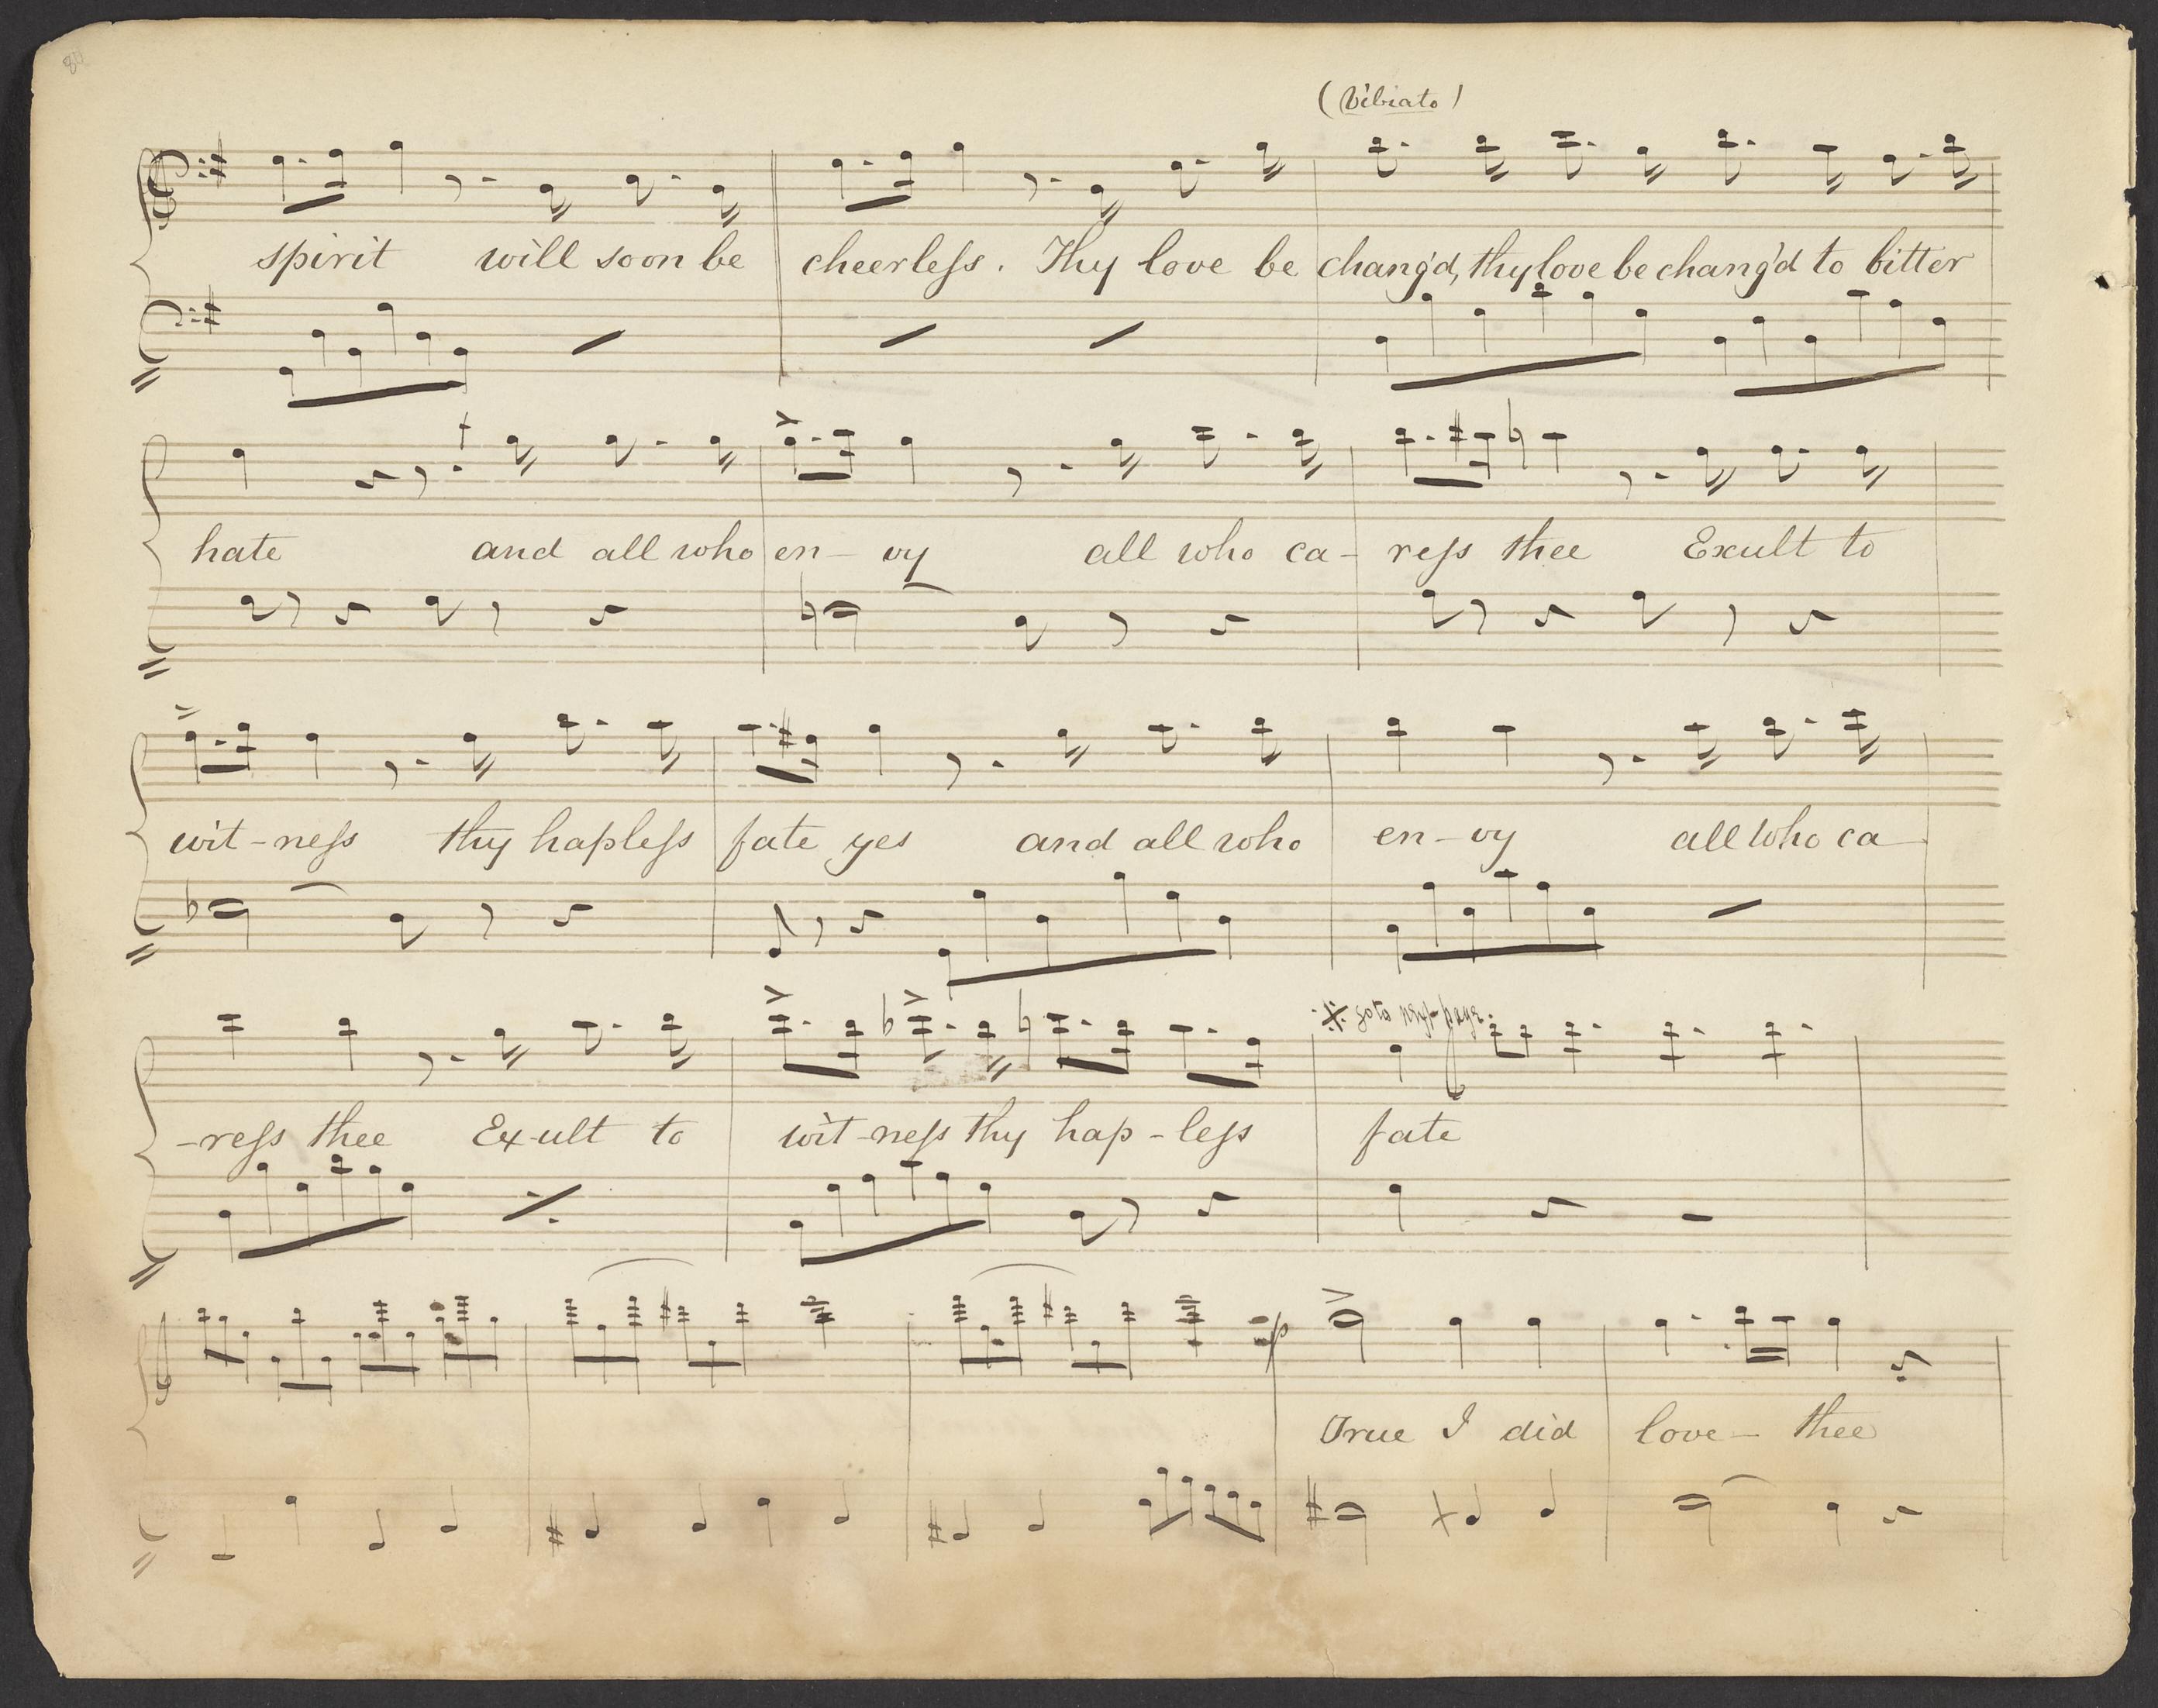 80
(Vibrato)
spirit will soon be cheerleſs. Thy love be chang'd, thy love be chang'd to bitter
hate and all who en- vy all who ca- reſs thee Exult to
wit-neſs thy hapleſs fate yes and all who en-vy all who ca-
-reſs thee Ex-ult to wit-neſs thy hap-leſs fate
True I did love- thee